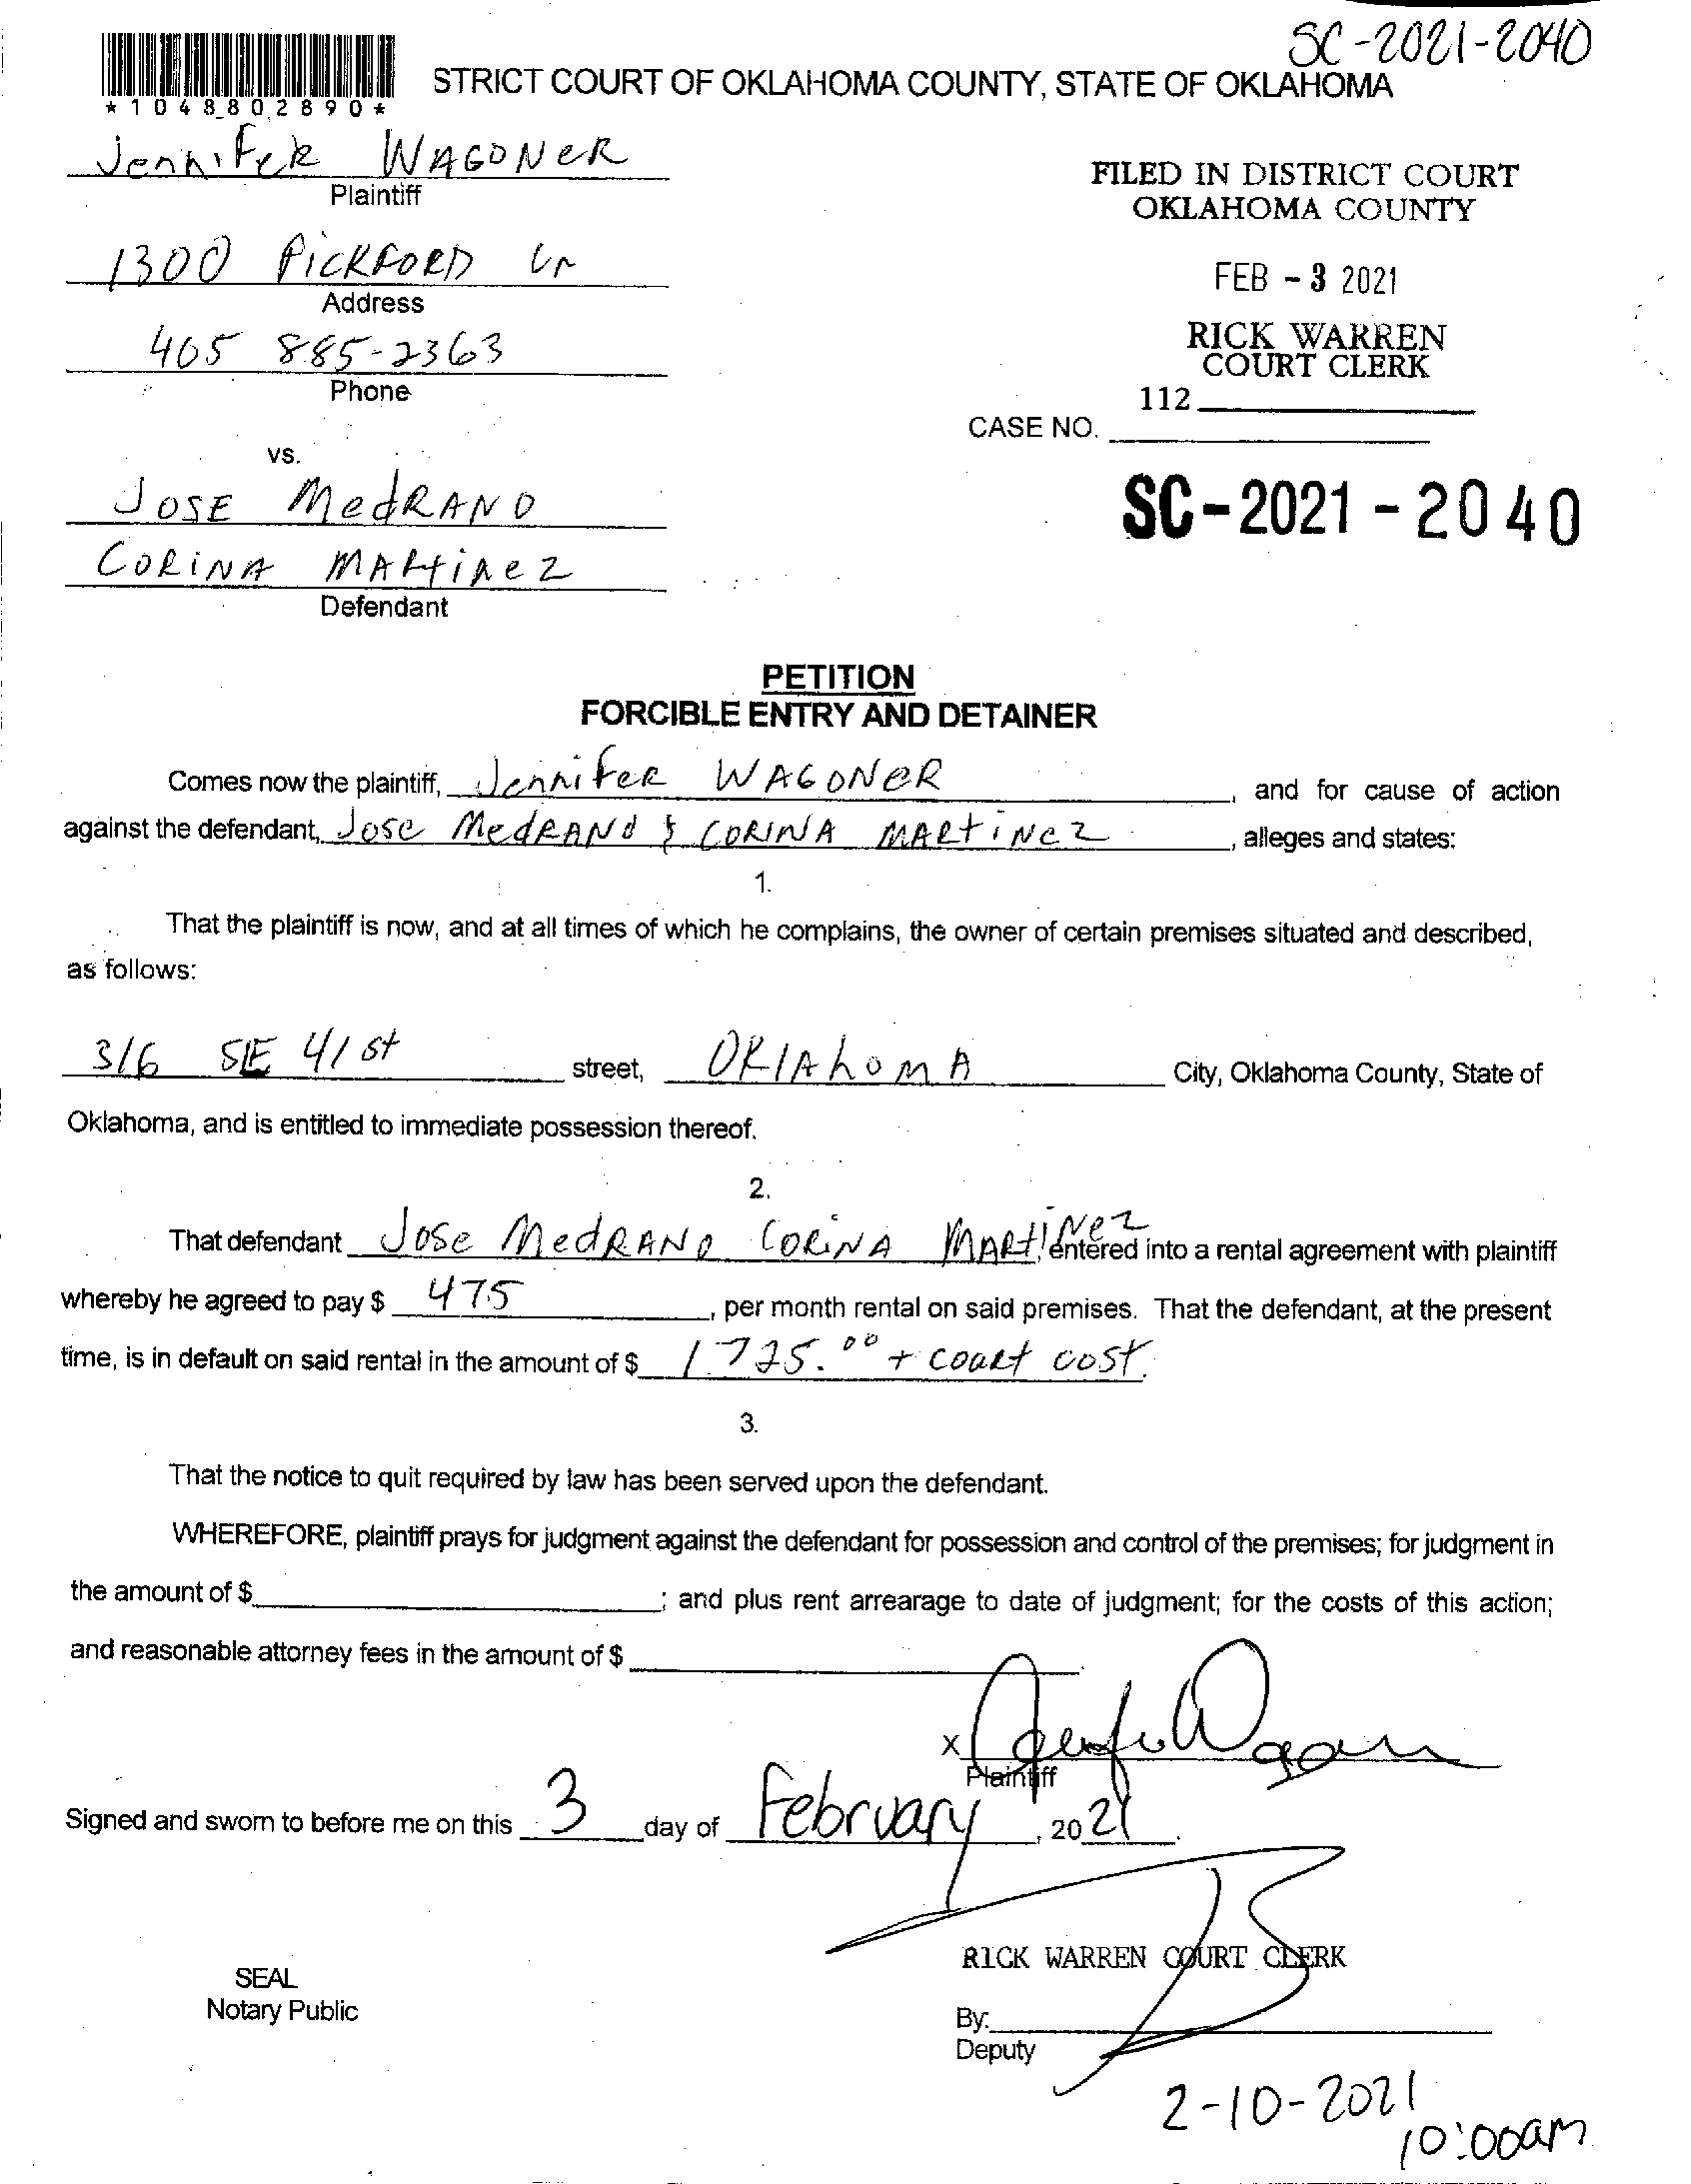 SC-2021-2040
STRICT COURT OF OKLAHOMA COUNTY, STATE OF OKLAHOMA
*1048802890*
Jennifer WAGONER
Plaintiff
FILED IN DISTRICT COURT
OKLAHOMA COUNTY
1300 PICKFORD Ln
Address
FEB - 3 2021
405 885-2363
Phone
RICK WARREN
COURT CLERK
112
CASE NO.
vs.
JOSE MedRANO
SC-2021-2040
CORINA MARtinez
Defendant
PETITION
FORCIBLE ENTRY AND DETAINER
Comes now the plaintiff, Jennifer WAGONER, and for cause of action
against the defendant, Jose MedRANO & CORINA MARtiNez, alleges and states:
1.
That the plaintiff is now, and at all times of which he complains, the owner of certain premises situated and described,
as follows:
316 SE 41st street, OklAhomA City, Oklahoma County, State of
Oklahoma, and is entitled to immediate possession thereof.
2.
That defendant Jose MedRANO CORINA MARtiNez entered into a rental agreement with plaintiff
whereby he agreed to pay $ 475, per month rental on said premises. That the defendant, at the present
time, is in default on said rental in the amount of $ 1725.00 + couRt cost.
3.
That the notice to quit required by law has been served upon the defendant.
WHEREFORE, plaintiff prays for judgment against the defendant for possession and control of the premises; for judgment in
the amount of $ ; and plus rent arrearage to date of judgment; for the costs of this action;
and reasonable attorney fees in the amount of $
x
Plaintiff
Signed and sworn to before me on this 3 day of February, 2021.
RICK WARREN COURT CLERK
SEAL
Notary Public
By:
Deputy
2-10-2021
10:00am